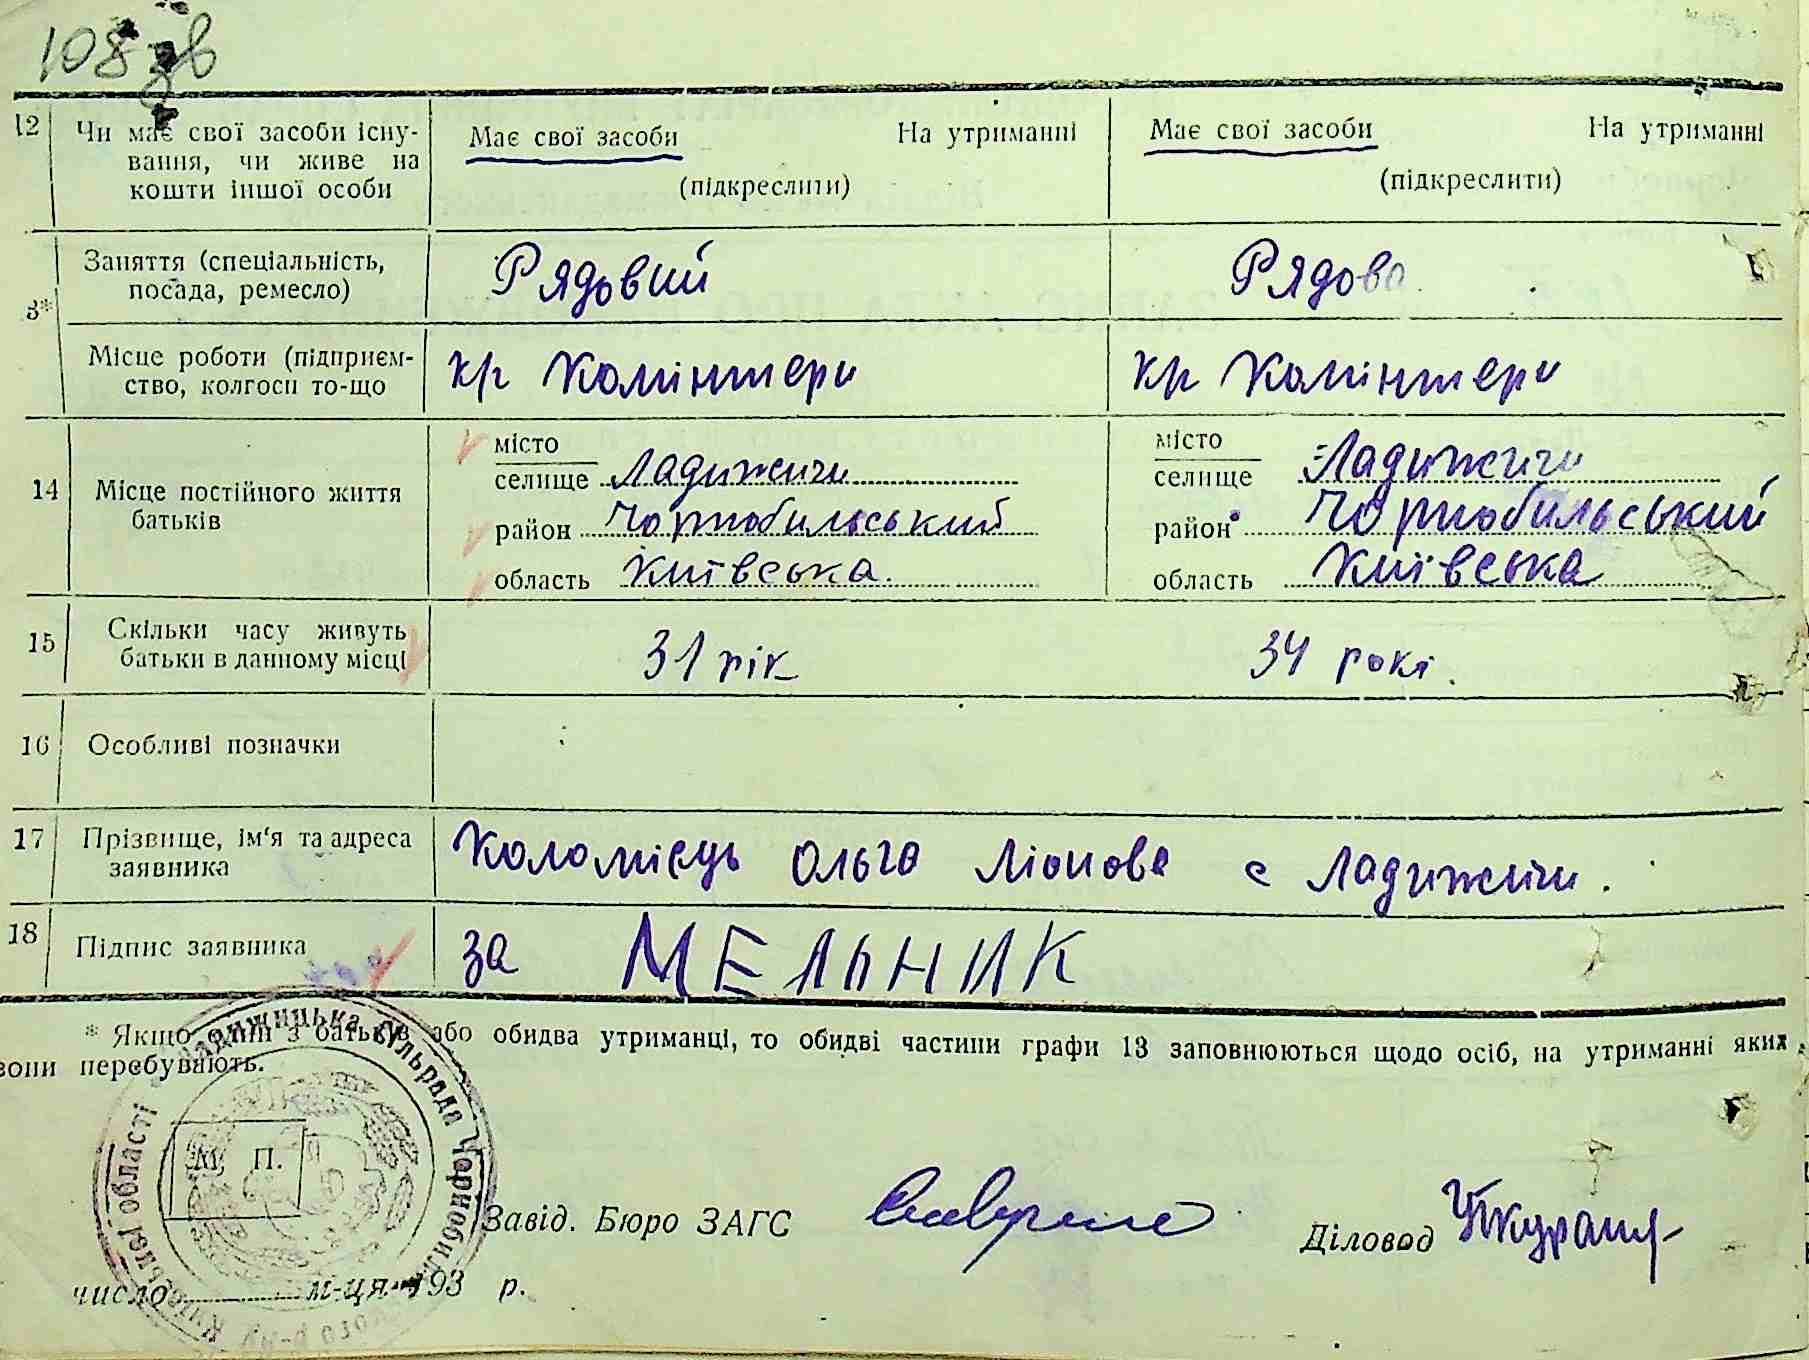 108 зв
12 Чи має свої засоби існу-
вання, чи живе на
кошти іншої особи
Має свої засоби На утриманні
(підкреслити)
Має свої засоби На утриманні
(підкреслити)
3*
Заняття (спеціальність,
посада, ремесло)
Рядовий
Рядова
Місце роботи (підприєм-
ство, колгосп то-що
к/г Комінтерн
к/г Комінтерн
14 Місце постійного життя
батьків
місто
селище Ладижичи
район Чорнобильський
область Київська
місто
селище Ладижичи
район Чорнобильський
область Київська
15 Скільки часу живуть
батьки в данному місці
31 рік
34 рокі
16 Особливі позначки
17 Прізвище, ім'я та адреса
заявника
Коломієць Ольга с Ладижичи.
18 Підпис заявника
за МЕЛЬНИК
* Якщо один з батьків або обидва утриманці, то обидві частини графи 13 заповнюються щодо осіб, на утриманні яких
вони перебувають.
Ладижицька сільрада Чорнобильського р-ну Київської області
М. П.
Завід. Бюро ЗАГС
Діловод
число м-ця 193 р.